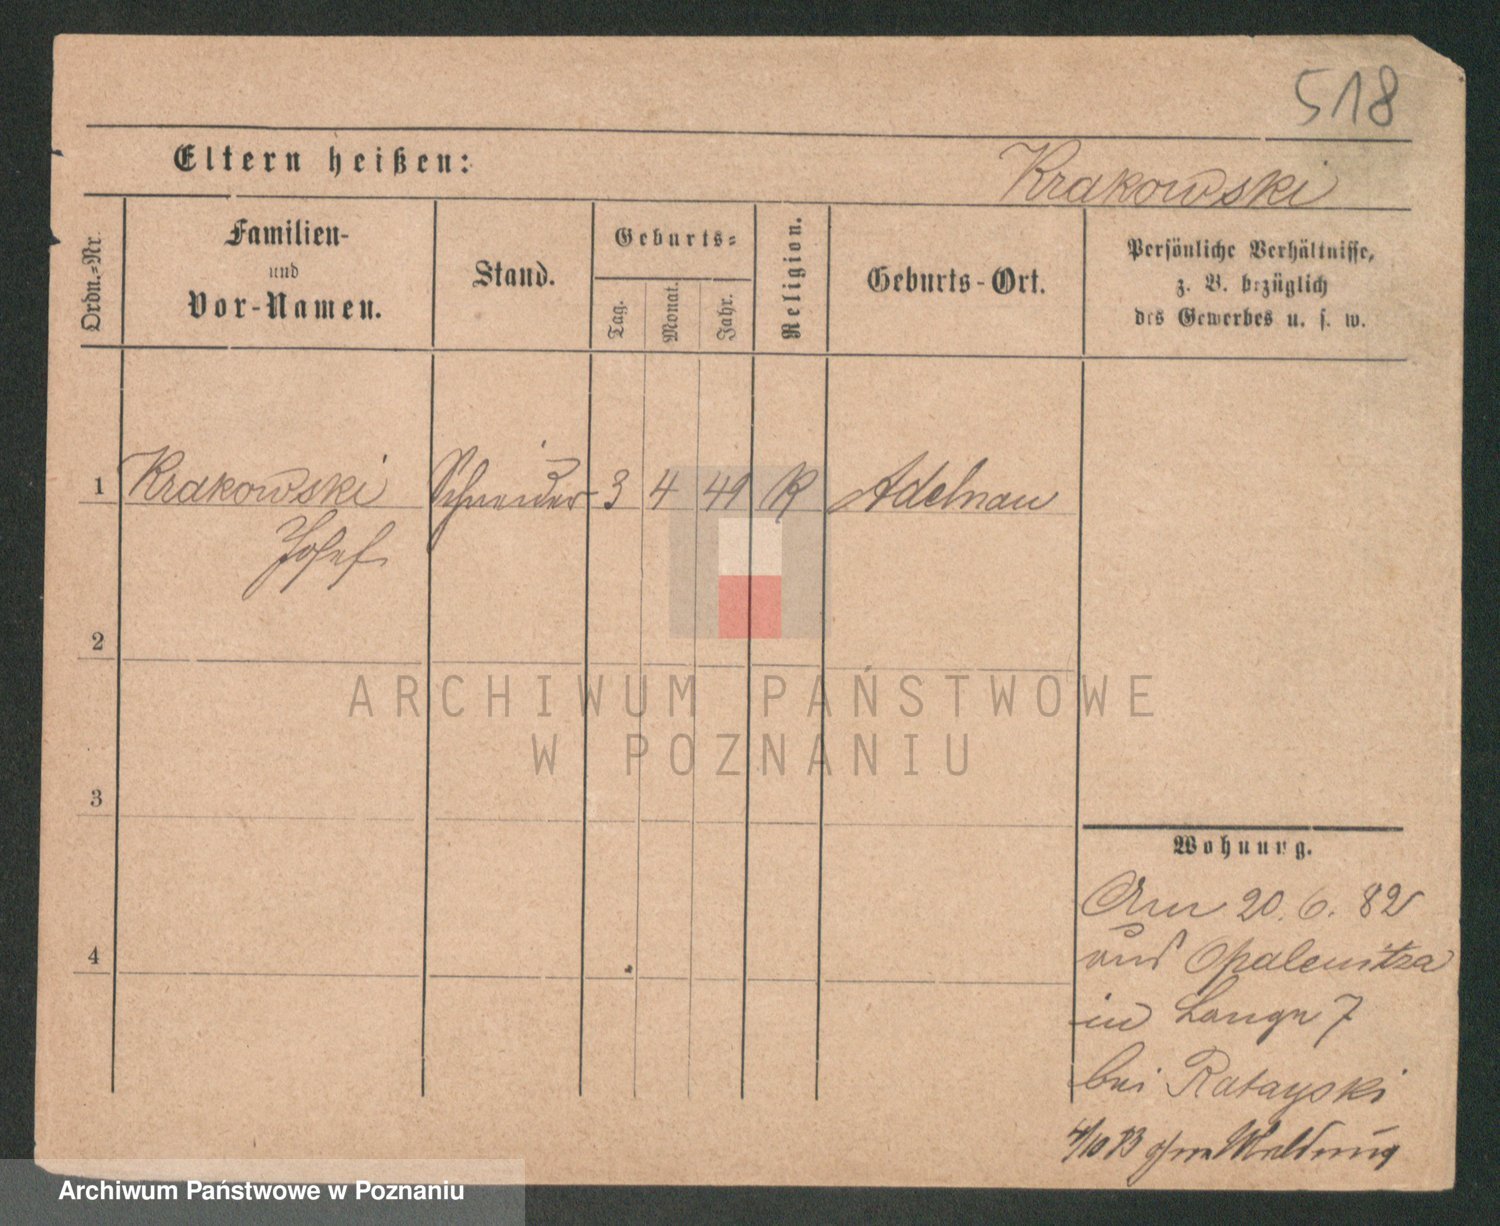 518
Eltern heißen:
Krakowski
Ordn.-Nr.
Familien-
und
Vor-Namen.
Stand.
Geburts-
Tag.
Monat.
Jahr.
Religion.
Geburts-Ort.
Persönliche Verhältnisse,
z. B. bezüglich
des Gewerbes u. s. w.
1 Krakowski Schneider 3 4 49 K Adelnau
Josef
2
3
4
ARCHIWUM PAŃSTWOWE
W POZNANIU
Wohnung.
Am 20. 6. 82
aus Opalenitza
in Lange 7
bei Ratayski
4/10 83 ohne Meldung
Archiwum Państwowe w Poznaniu